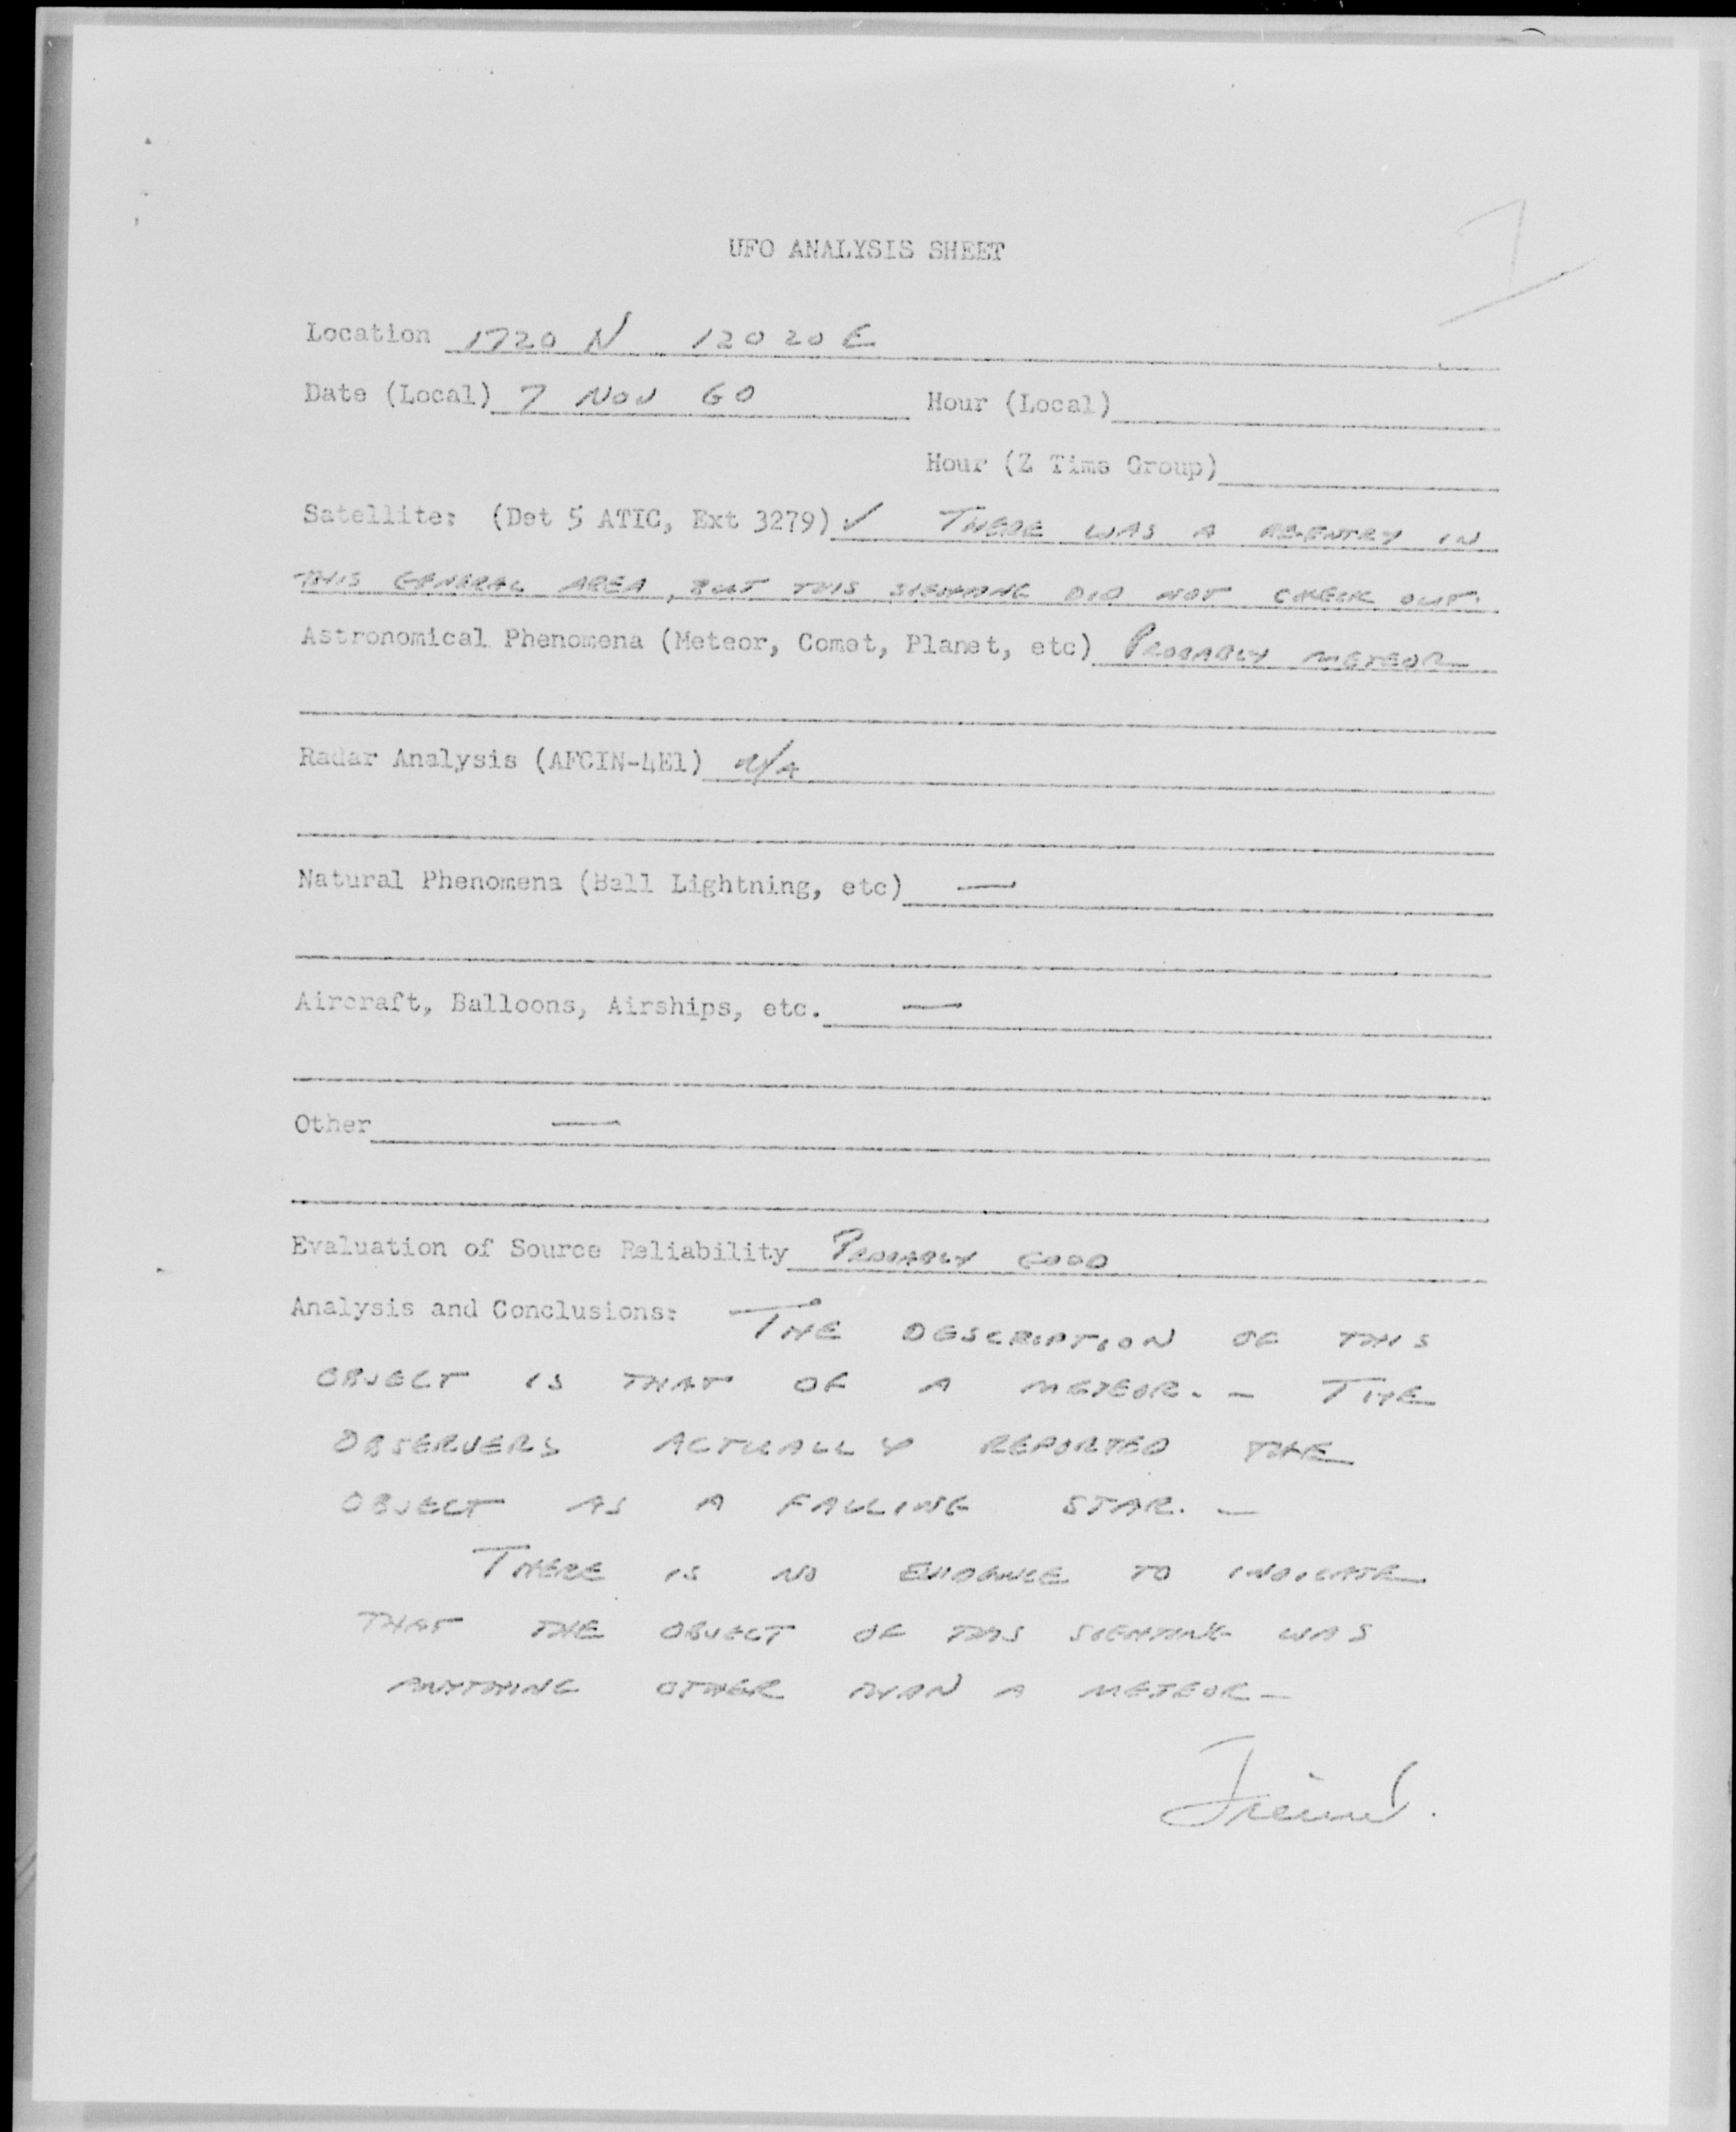 UFO ANALYSIS SHEET
Location 1720 N 12020 E
Date (Local) 7 NOV 60 Hour (Local)
Hour (Z Time Group)
Satellite: (Det 5 ATIC, Ext 3279) ✓ THERE WAS A RE-ENTRY IN
THIS GENERAL AREA, BUT THIS SIGHTING DID NOT CHECK OUT.
Astronomical Phenomena (Meteor, Comet, Planet, etc) PROBABLY METEOR
Radar Analysis (AFCIN-4E1) N/A
Natural Phenomena (Ball Lightning, etc) —
Aircraft, Balloons, Airships, etc. —
Other —
Evaluation of Source Reliability PROBABLY GOOD
Analysis and Conclusions: THE DESCRIPTION OF THIS
OBJECT IS THAT OF A METEOR. — THE
OBSERVERS ACTUALLY REPORTED THE
OBJECT AS A FALLING STAR. —
THERE IS NO EVIDENCE TO INDICATE
THAT THE OBJECT OF THIS SIGHTING WAS
ANYTHING OTHER THAN A METEOR —